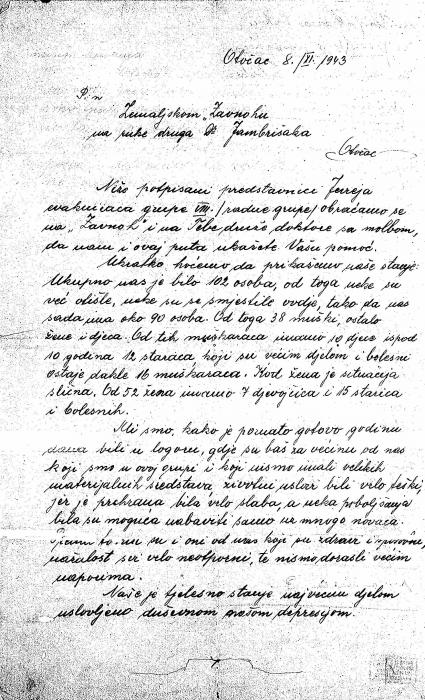 Otočac 8./XI./1943
P. n
Zemaljskom „Zavnohu
na ruke druga Dr Jambrišaka
Otočac
Niže potpisani predstavnici Jevreja
evakuiraca grupe VIII. /radne grupe/ obraćamo se
na „Zavnoh" i na Tebe druže doktore sa molbom,
da nam i ovaj puta ukažete Vašu pomoć.
Ukratko hoćemo da prikažemo naše stanje:
Ukupno nas je bilo 102 osoba, od toga neke su
već otišle, neke su se smjestile ovdje, tako da nas
sada ima oko 90 osoba. Od toga 38 muški, ostalo
žene i djeca. Od tih muškaraca imamo 10 djece ispod
10 godina 12 staraca koji su većim djelom i bolesni
Ostaje dakle 16 muškaraca. Kod žena je situacija
slična. Od 52 žena imamo 7 djevojčica i 15 starica
i bolesnih.
Mi smo, kako je poznato gotovo godinu
dana bili u logoru, gdje su baš za većinu od nas
koji smo u ovoj grupi i koji nismo imali velikih
materijalnih sredstava životni uslovi bili vrlo teški,
jer je prehrana bila vrlo slaba, a neka poboljšanja
bila su moguća nabaviti samo uz mnogo novaca.
su i oni od nas koji su zdravi i
nažalost svi vrlo neotporni, te nismo dorasli većim
naporima.
Naše je tjelesno stanje najvećim djelom
uslovljeno duševnom našom depresijom.